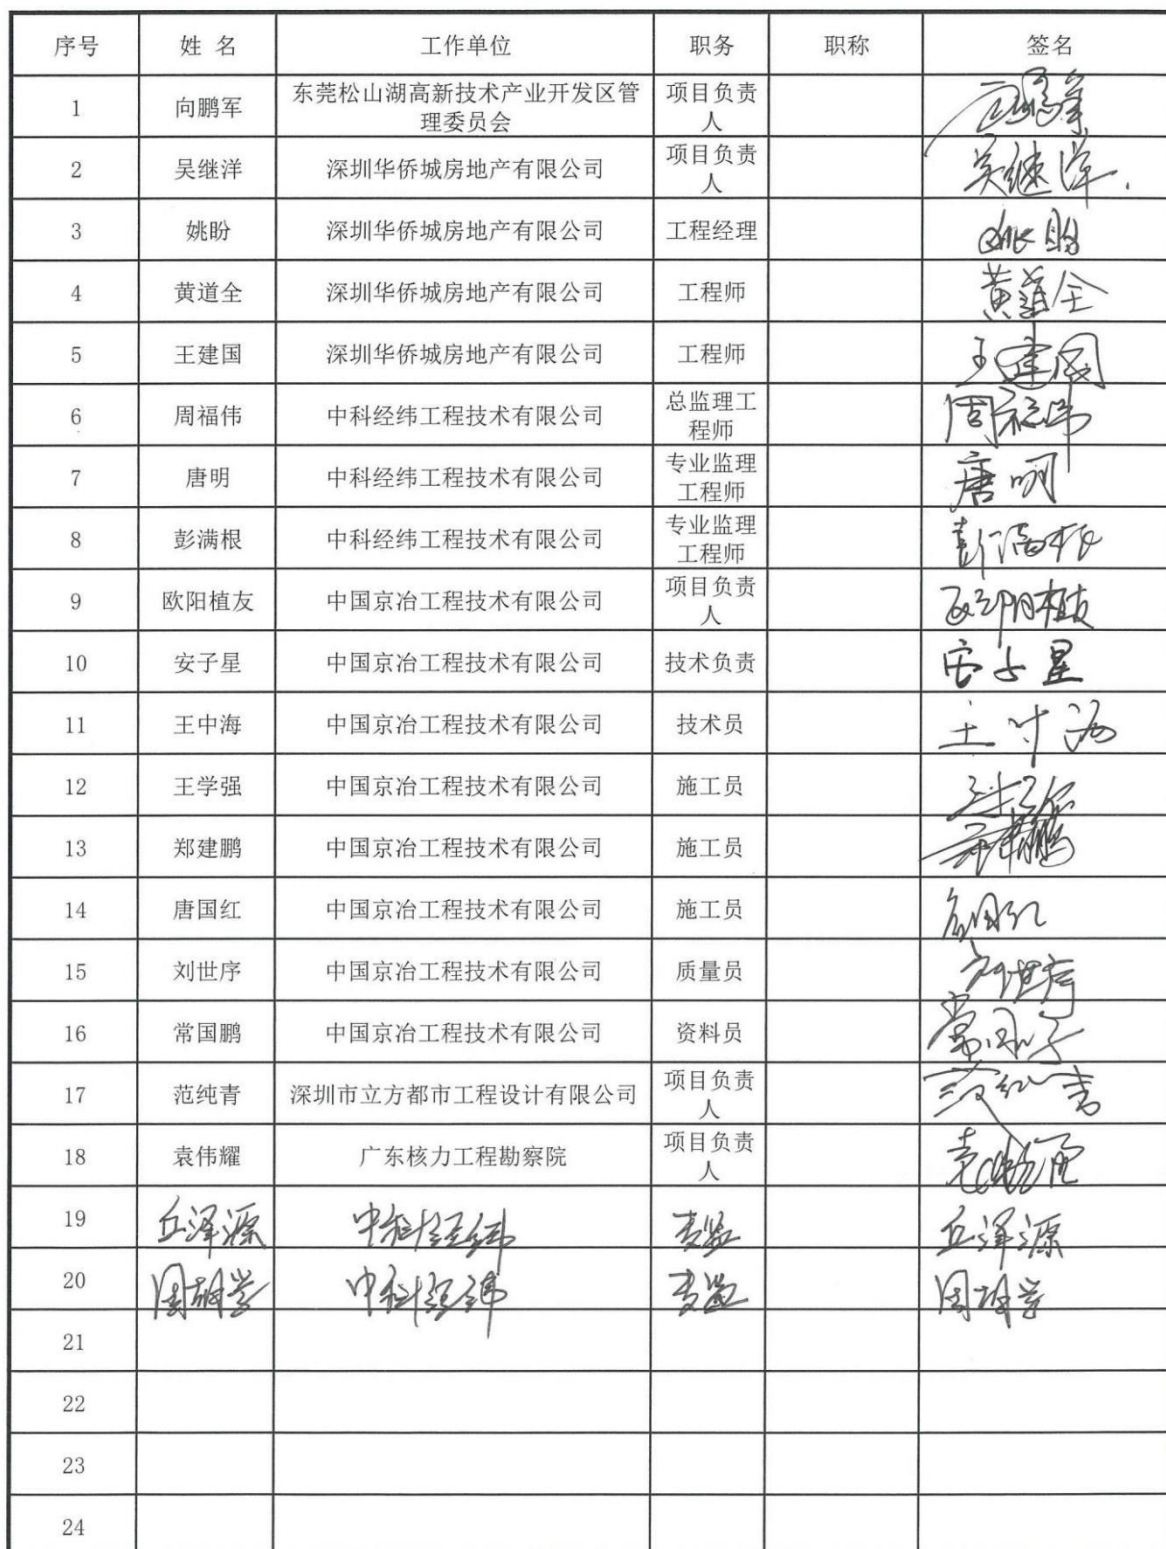 序号 姓 名 工作单位 职务 职称 签名
1 向鹏军 东莞松山湖高新技术产业开发区管理委员会 项目负责人
2 吴继洋 深圳华侨城房地产有限公司 项目负责人 吴继洋
3 姚盼 深圳华侨城房地产有限公司 工程经理 姚盼
4 黄道全 深圳华侨城房地产有限公司 工程师 黄道全
5 王建国 深圳华侨城房地产有限公司 工程师 王建国
6 周福伟 中科经纬工程技术有限公司 总监理工程师 周福伟
7 唐明 中科经纬工程技术有限公司 专业监理工程师 唐明
8 彭满根 中科经纬工程技术有限公司 专业监理工程师 彭满根
9 欧阳植友 中国京冶工程技术有限公司 项目负责人 欧阳植友
10 安子星 中国京冶工程技术有限公司 技术负责 安子星
11 王中海 中国京冶工程技术有限公司 技术员 王中海
12 王学强 中国京冶工程技术有限公司 施工员 王学强
13 郑建鹏 中国京冶工程技术有限公司 施工员 郑建鹏
14 唐国红 中国京冶工程技术有限公司 施工员 唐国红
15 刘世序 中国京冶工程技术有限公司 质量员 刘世序
16 常国鹏 中国京冶工程技术有限公司 资料员
17 范纯青 深圳市立方都市工程设计有限公司 项目负责人 范纯青
18 袁伟耀 广东核力工程勘察院 项目负责人
19 丘泽源 中科经纬 专监 丘泽源
20 周胡学 中科经纬 专监 周胡学
21
22
23
24